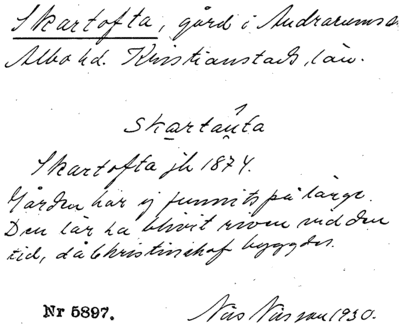 Skartofta, gård i Andrarums s.
Albo hd. Kristianstads, län.
skartau̯ta
Skartofta jb 1874.
Gården har ej funnits på länge.
Den lär ha blivit riven vid den
tid, då Christinehof byggdes.
Nr 5897. Nils Nilsson 1930.